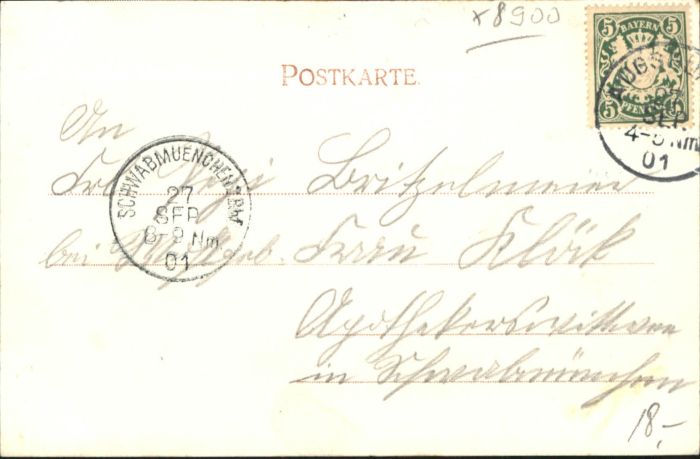 x8900
5 BAYERN 5
5 PFENNIG 5
POSTKARTE.
AUGSBURG
SEP.
4-5 Nm.
01
SCHWABMUENCHEN
27
SEP
8-9 Nm.
01
An
Frl. Britzelmeier
bei Frau Kloek
Apothekerswittwe
in Schwabmünchen
18.-